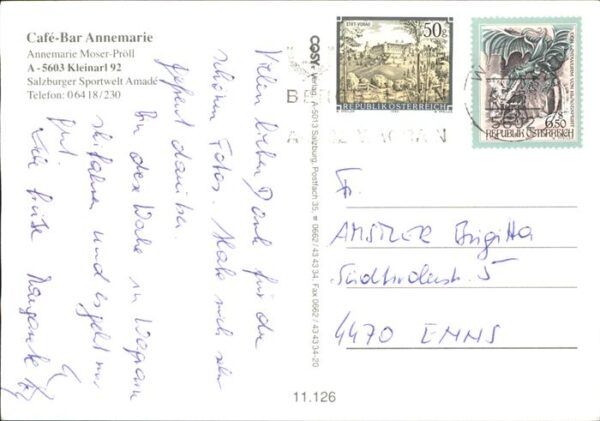 Café-Bar Annemarie
Annemarie Moser-Pröll
A - 5603 Kleinarl 92
Salzburger Sportwelt Amadé
Telefon: 0 64 18 / 230
Vielen lieben Dank für die
schönen Fotos. Habe mich sehr
gefreut darüber.
Bin diese Woche in Wagrain
skifahren und es geht mir
gut.
Liebe Grüße Margarete
COSY Verlag, A-5013 Salzburg, Postfach 35, 0662/43 43 34, Fax 0662/43 43 34-20
STIFT VORAU
50g
REPUBLIK ÖSTERREICH
6.50
REPUBLIK ÖSTERREICH
Fr.
AMSTLER Brigitta
5
4470 ENNS
11.126